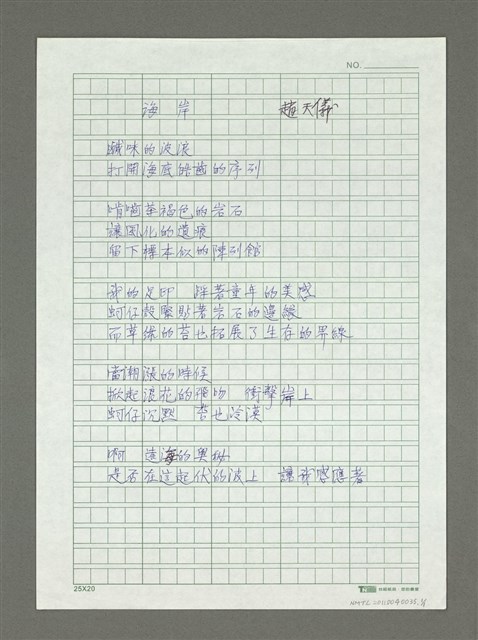 NO.
海岸 趙天儀
鹹味的波浪
打開海底的齒的序列
啃嚙茶褐色的岩石
讓風化的遺痕
留下標本似的陳列館
我的足印 踩著童年的美感
蚵仔殼緊貼著岩石的邊緣
而草綠的苔也拓展了生存的界線
當潮漲的時候
掀起浪花的飛吻 衝擊岸上
蚵仔沉默 苔也冷漠
啊 這海的奧秘
是否在這起伏的波上 讓我感應著
25X20